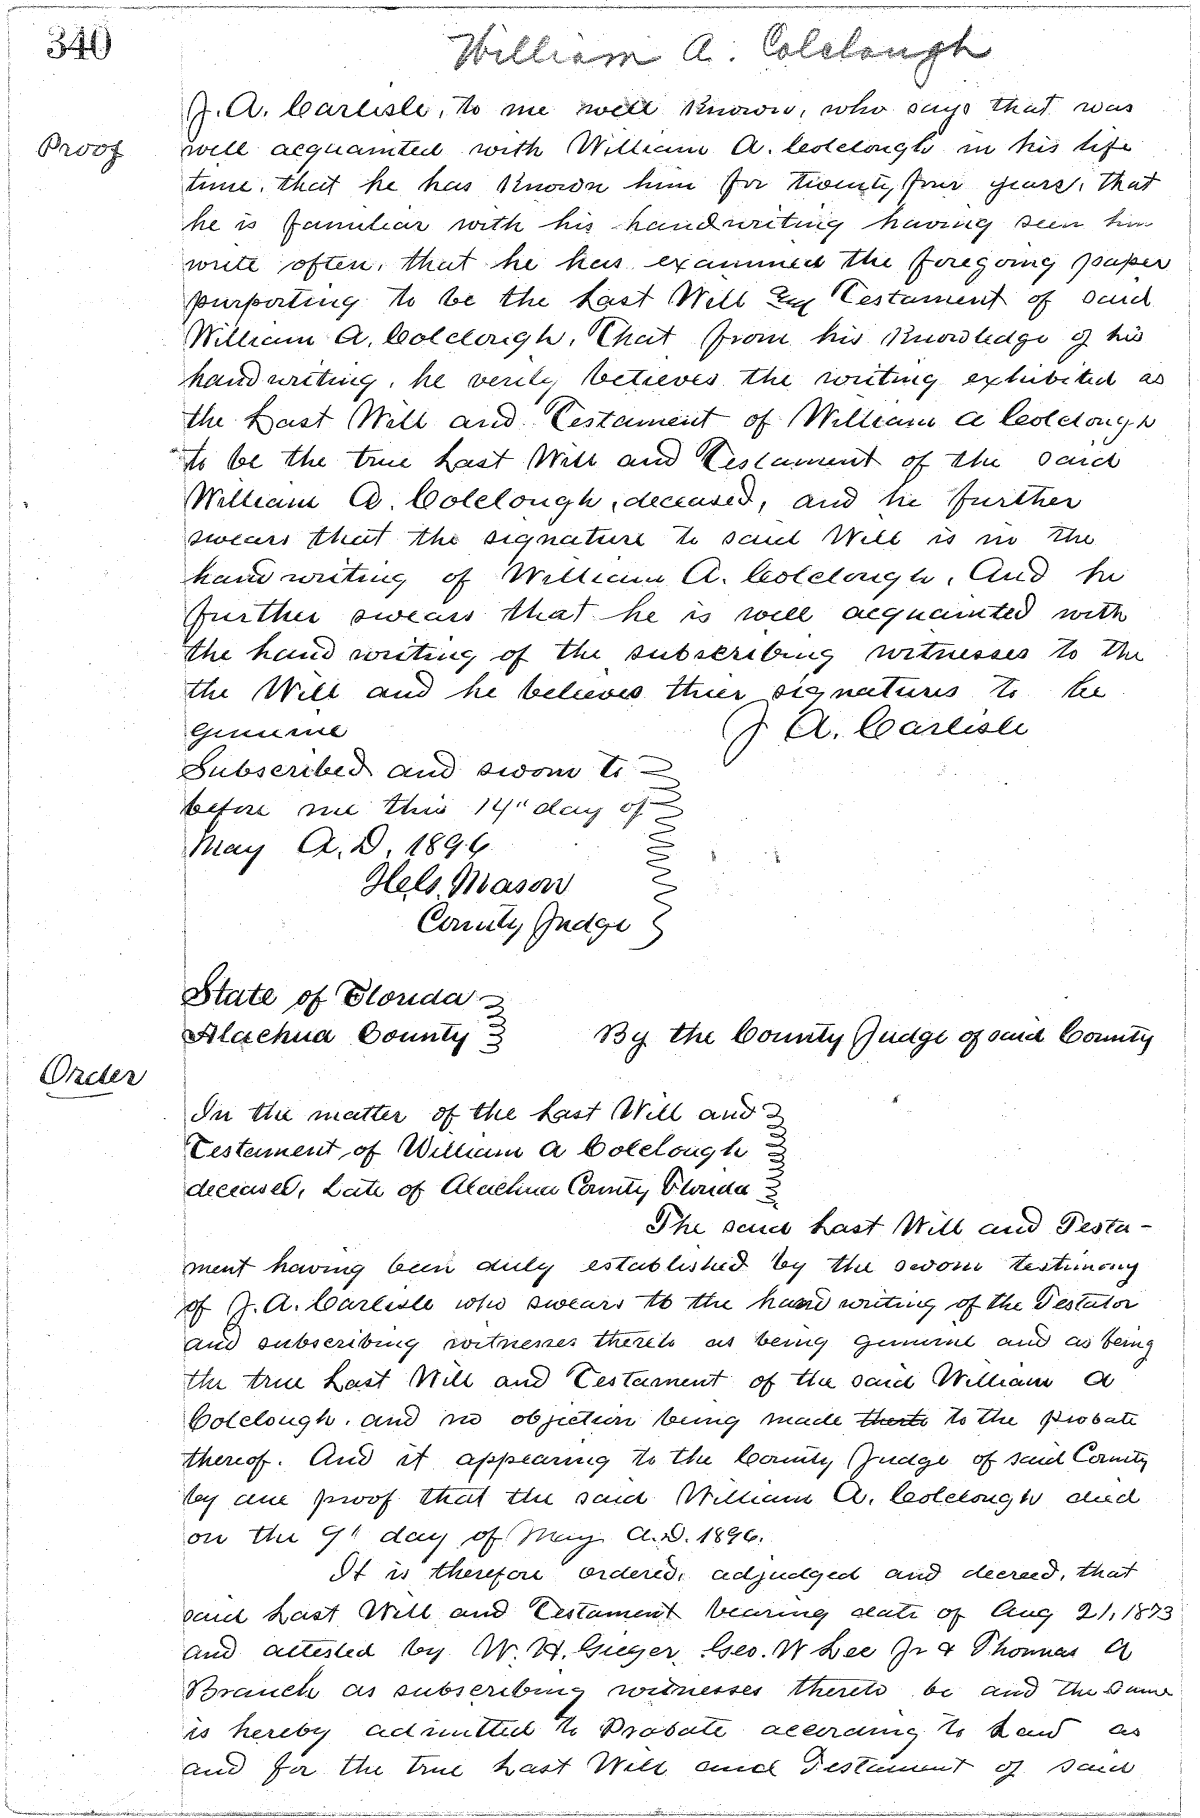 340
William A. Colclough
J. A. Carlisle, to me well Known, who says that was
Proof
well acquainted with William A. Colclough in his life
time, that he has Known him for twenty four years, that
he is familiar with his handwriting having seen him
write often, that he has examined the foregoing paper
purporting to be the Last Will and Testament of said
William A. Colclough, That from his Knowledge of his
handwriting, he verily believes the writing exhibited as
the Last Will and Testament of William A Colclough
to be the true Last Will and Testament of the said
William A. Colclough, deceased, and he further
swears that the signature to said Will is in the
hand writing of William A. Colclough, And he
further swears that he is well acquainted with
the hand writing of the subscribing witnesses to the
the Will and he believes thier signatures to be
genuine
J A. Carlisle
Subscribed and sworn to
before me this 14" day of
May A.D. 1896
Hels. Mason
County Judge
State of Florida
Alachua County
By the County Judge of said County
Order
In the matter of the Last Will and
Testament of William A Colclough
deceased, Late of Alachua County Florida
The said Last Will and Testa-
ment having been duly established by the sworn testimony
of J. A. Carlisle who swears to the hand writing of the Testator
and subscribing witnesses thereto as being genuine and as being
the true Last Will and Testament of the said William A
Colclough. and no objection being made thereto to the probate
thereof. And it appearing to the County Judge of said County
by due proof that the said William A. Colclough died
on the 9" day of May A.D. 1896.
It is therefore ordered, adjudged and decreed, that
said Last Will and Testament bearing date of Aug 21, 1873
and attested by W. H. Gieger, Geo. W Lee Jr & Thomas A
Branch as subscribing witnesses thereto be and the same
is hereby admitted to Probate according to Law as
and for the true Last Will and Testament of said